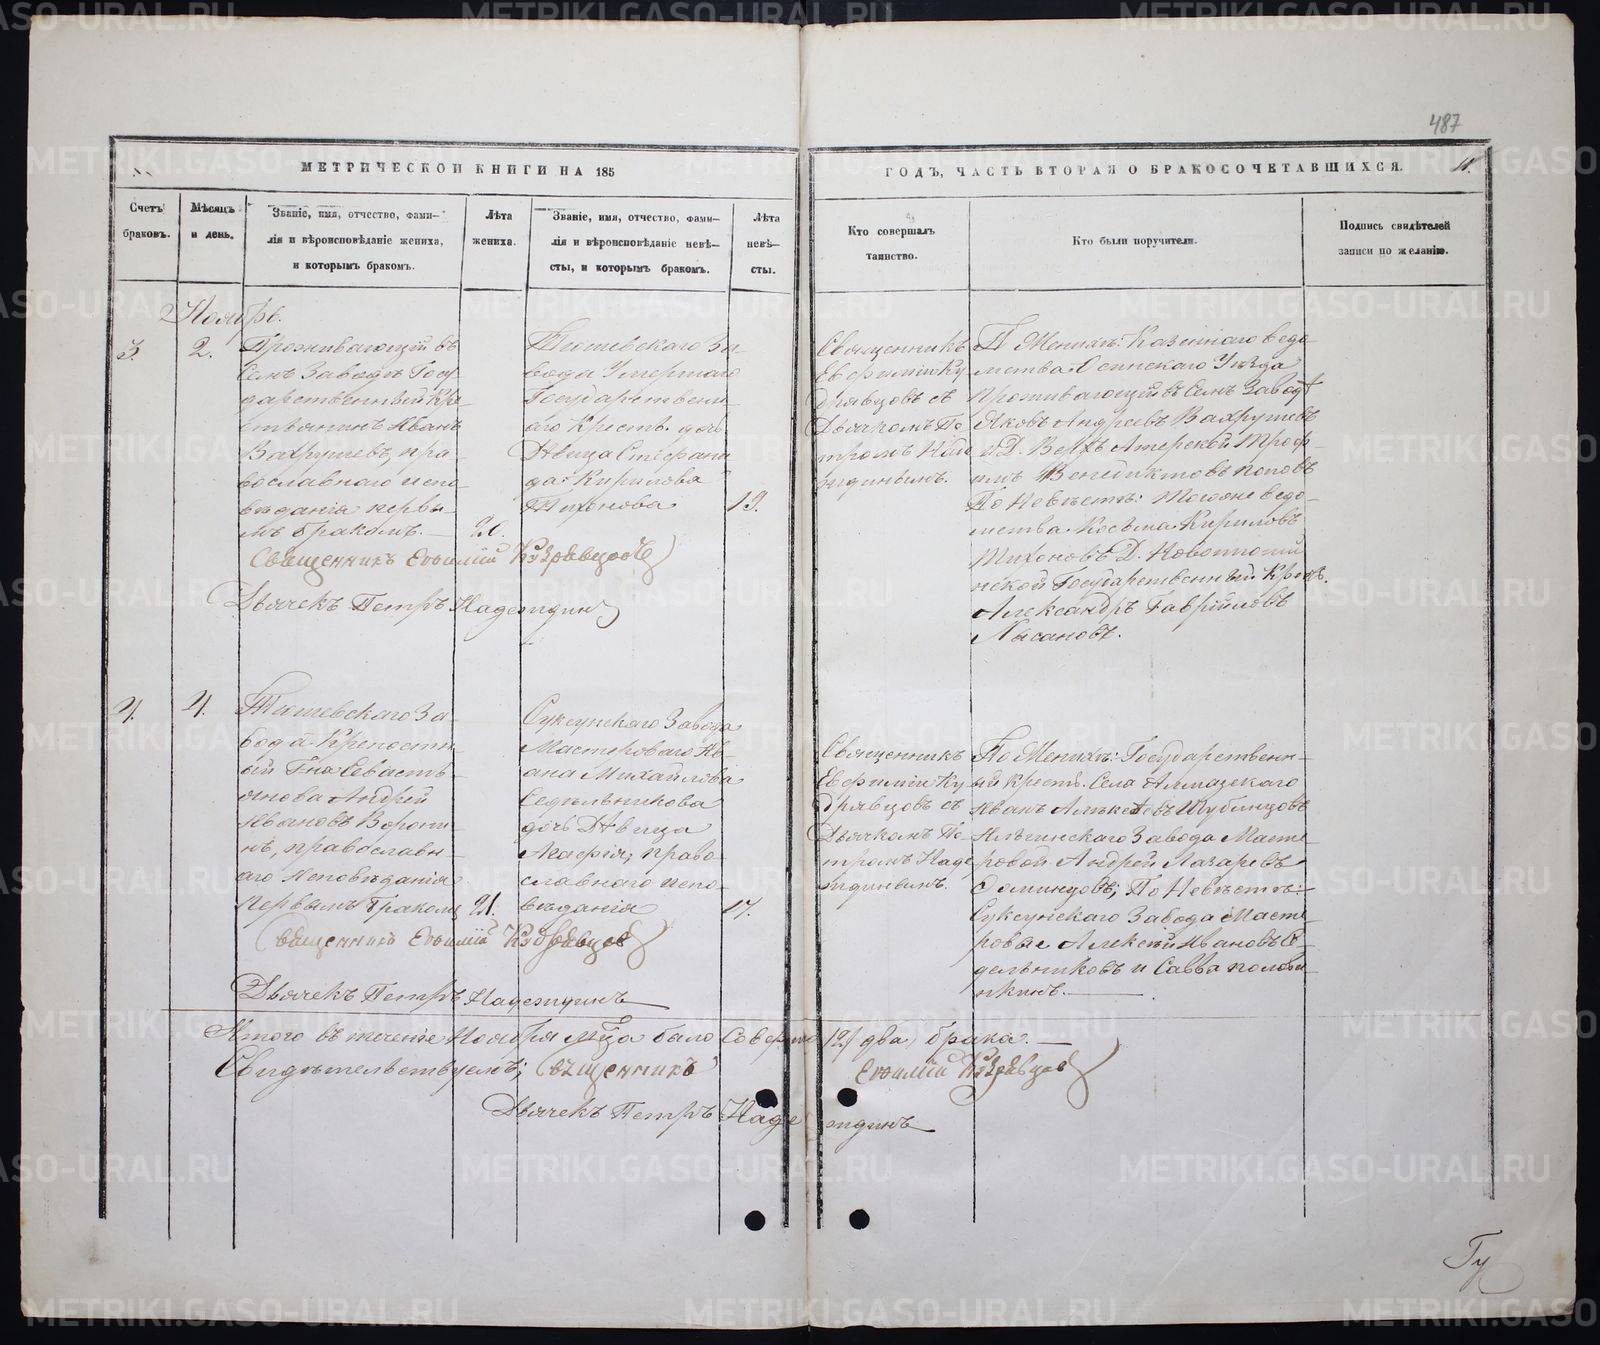 487
МЕТРИЧЕСКОЙ КНИГИ НА 185
ГОДЪ, ЧАСТЬ ВТОРАЯ О БРАКОСОЧЕТАВШИХСЯ.
11.
Счетъ
браковъ.
Мѣсяцъ
и день.
Званіе, имя, отчество, фами-
лія и вѣроисповѣданіе жениха,
и которымъ бракомъ.
Лѣта
жениха.
Званіе, имя, отчество, фами-
лія и вѣроисповѣданіе невѣ-
сты, и которымъ бракомъ.
Лѣта
невѣ-
сты.
Кто совершалъ
таинство.
Кто были поручители.
Подпись свидѣтелей
записи по желанію.
Ноябрь.
3.
2.
Проживающій въ
Селѣ Заводѣ Госу
дарственный Кре
стьянинъ Иванъ
Вахрушевъ, пра
вославнаго испо
вѣданія первы
мъ бракомъ.
Тисовскаго За-
вода Умершаго
Государственн
аго Крестъ. дочь
Дѣвица Стефани
да Кирилова
Тихонова
19.
Священникъ
Евфимій Ку
дрявцовъ съ
Дьячкомъ Пе
тромъ Наде
ждинымъ.
По Женихѣ: Казеннаго вѣдо-
мства Осинскаго Уѣзда
проживающій въ Селѣ Заводѣ
Яковъ Андреевъ Вахрушевъ
и Д. Верхъ Троф-
имъ Венедиктовъ Поповъ
По Невѣстѣ: Тогоже вѣдо-
мства Косьма Кириловъ
Тихоновъ Д.
Государственный Крест.
Александръ Гавріиловъ
Лысановъ.
Священникъ Евфимій Кудрявцовъ
Дьячекъ Петръ Надеждинъ
4.
4.
Тисовскаго За-
вода Крѣпостн
ый Гна Севасть-
янова Андрей
Ивановъ Ворони
нъ, православн-
аго Исповѣданія
Первымъ бракомъ
21.
Суксунскаго Завода
Мастероваго Ив-
ана Михайлова
Седельникова
дочь Дѣвица
Агафія, право-
славнаго испо-
вѣданія
17.
Священникъ
Евфимій Ку
дрявцовъ съ
Дьячкомъ Пе-
тромъ Наде
ждинымъ.
По Женихѣ: Государственн-
ый Крест. Села Алмазскаго
Иванъ Шубинцовъ
Завода Масте
ровой Андрей Лазаревъ
По Невѣстѣ:
Суксунскаго Завода Масте
ровые Алексѣй Ивановъ Се-
дельниковъ и Савва Полови
нкинъ.
Священникъ Евфимій Кудрявцовъ
Дьячекъ Петръ Надеждинъ
Итого въ теченіе Ноября Мца было Соверше /2/ два брака.
Свидѣтельствуемъ: Священникъ Евфимій Кудрявцовъ
Дьячекъ Петръ Надеждинъ
METRIKI.GASO-URAL.RU